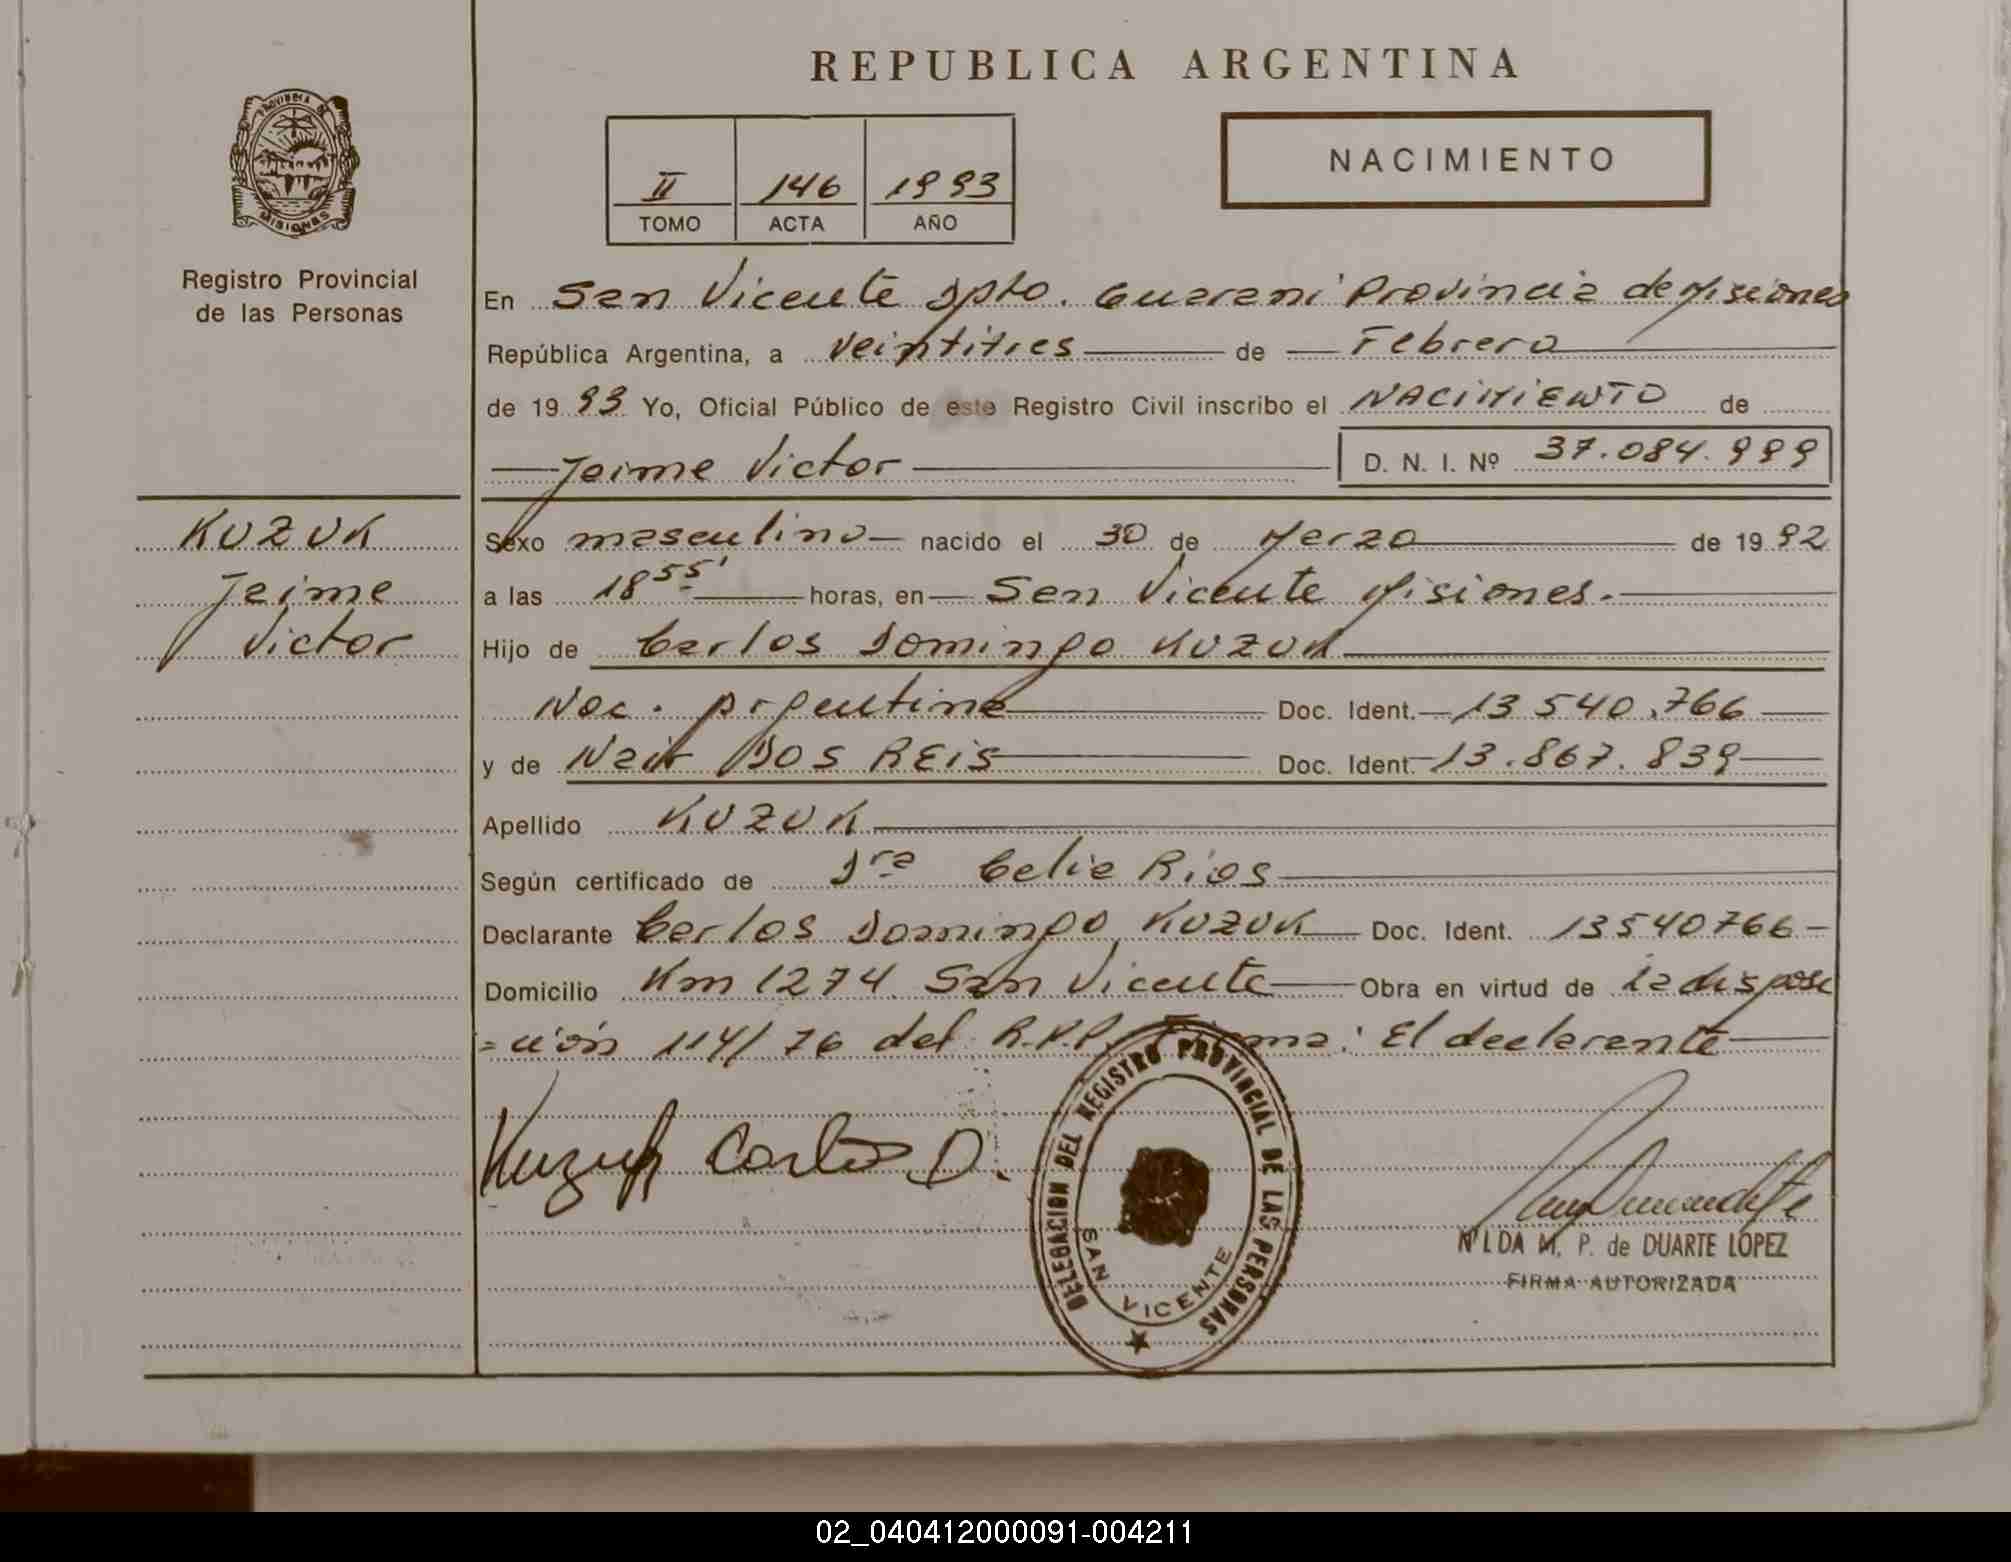 REPUBLICA ARGENTINA
PROVINCIA DE
MISIONES
Registro Provincial
de las Personas
II 146 1993
TOMO ACTA AÑO
NACIMIENTO
En San Vicente Dpto. Guarani Provincia de Misiones
República Argentina, a veintitres de Febrero
de 1993 Yo, Oficial Público de este Registro Civil inscribo el NACIMIENTO de
Jaime Victor D. N. I. Nº 37.084.999
KUZUK
Jaime
Victor
Sexo masculino nacido el 30 de Marzo de 1992
a las 18 55' horas, en San Vicente Misiones.
Hijo de Carlos Domingo KUZUK
Nac. Argentina Doc. Ident. 13 540.766
y de Nair DOS REIS Doc. Ident. 13.867.839
Apellido KUZUK
Según certificado de Dra Celia Rios
Declarante Carlos Domingo KUZUK Doc. Ident. 13540766
Domicilio Km 1274 San Vicente Obra en virtud de la disposi
=ción 114/76 del R.P.P. Firma: El declarante
Kuzuk Carlos D.
DELEGACION DEL REGISTRO PROVINCIAL DE LAS PERSONAS
SAN VICENTE
NILDA M. P. de DUARTE LOPEZ
FIRMA AUTORIZADA
02_040412000091-004211